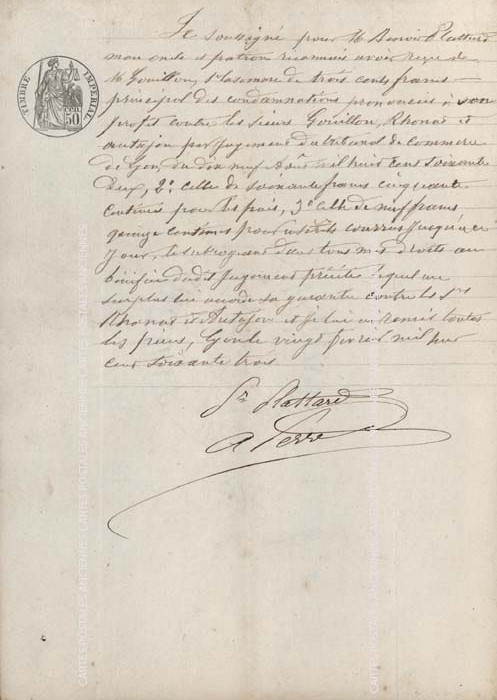 TIMBRE IMPERIAL
50
Je soussigné pour M. Benoit Plattard
mon oncle et patron reconnais avoir reçu de
M. Gouillon, 1° la somme de trois cents francs
principal des condamnations prononcées à son
profit contre les sieurs Gouillon, Rhonas et
par jugement du tribunal de commerce
de Lyon, du dix neuf août mil huit cent soixante
deux, 2° celle de soixante francs cinquante
centimes pour les frais, 3° celle de neuf francs
quinze centimes pour intérêts courus jusqu'à ce
jour, le subrogeant dans tous mes droits au
bénéfice dudit jugement précité lequel au
surplus lui accorde sa garantie contre les Srs
Rhonas et et je lui ai remis toutes
les pièces, Lyon le vingt février mil huit
cent soixante trois
Pr Plattard
A Perre
CARTES POSTALES ANCIENNES